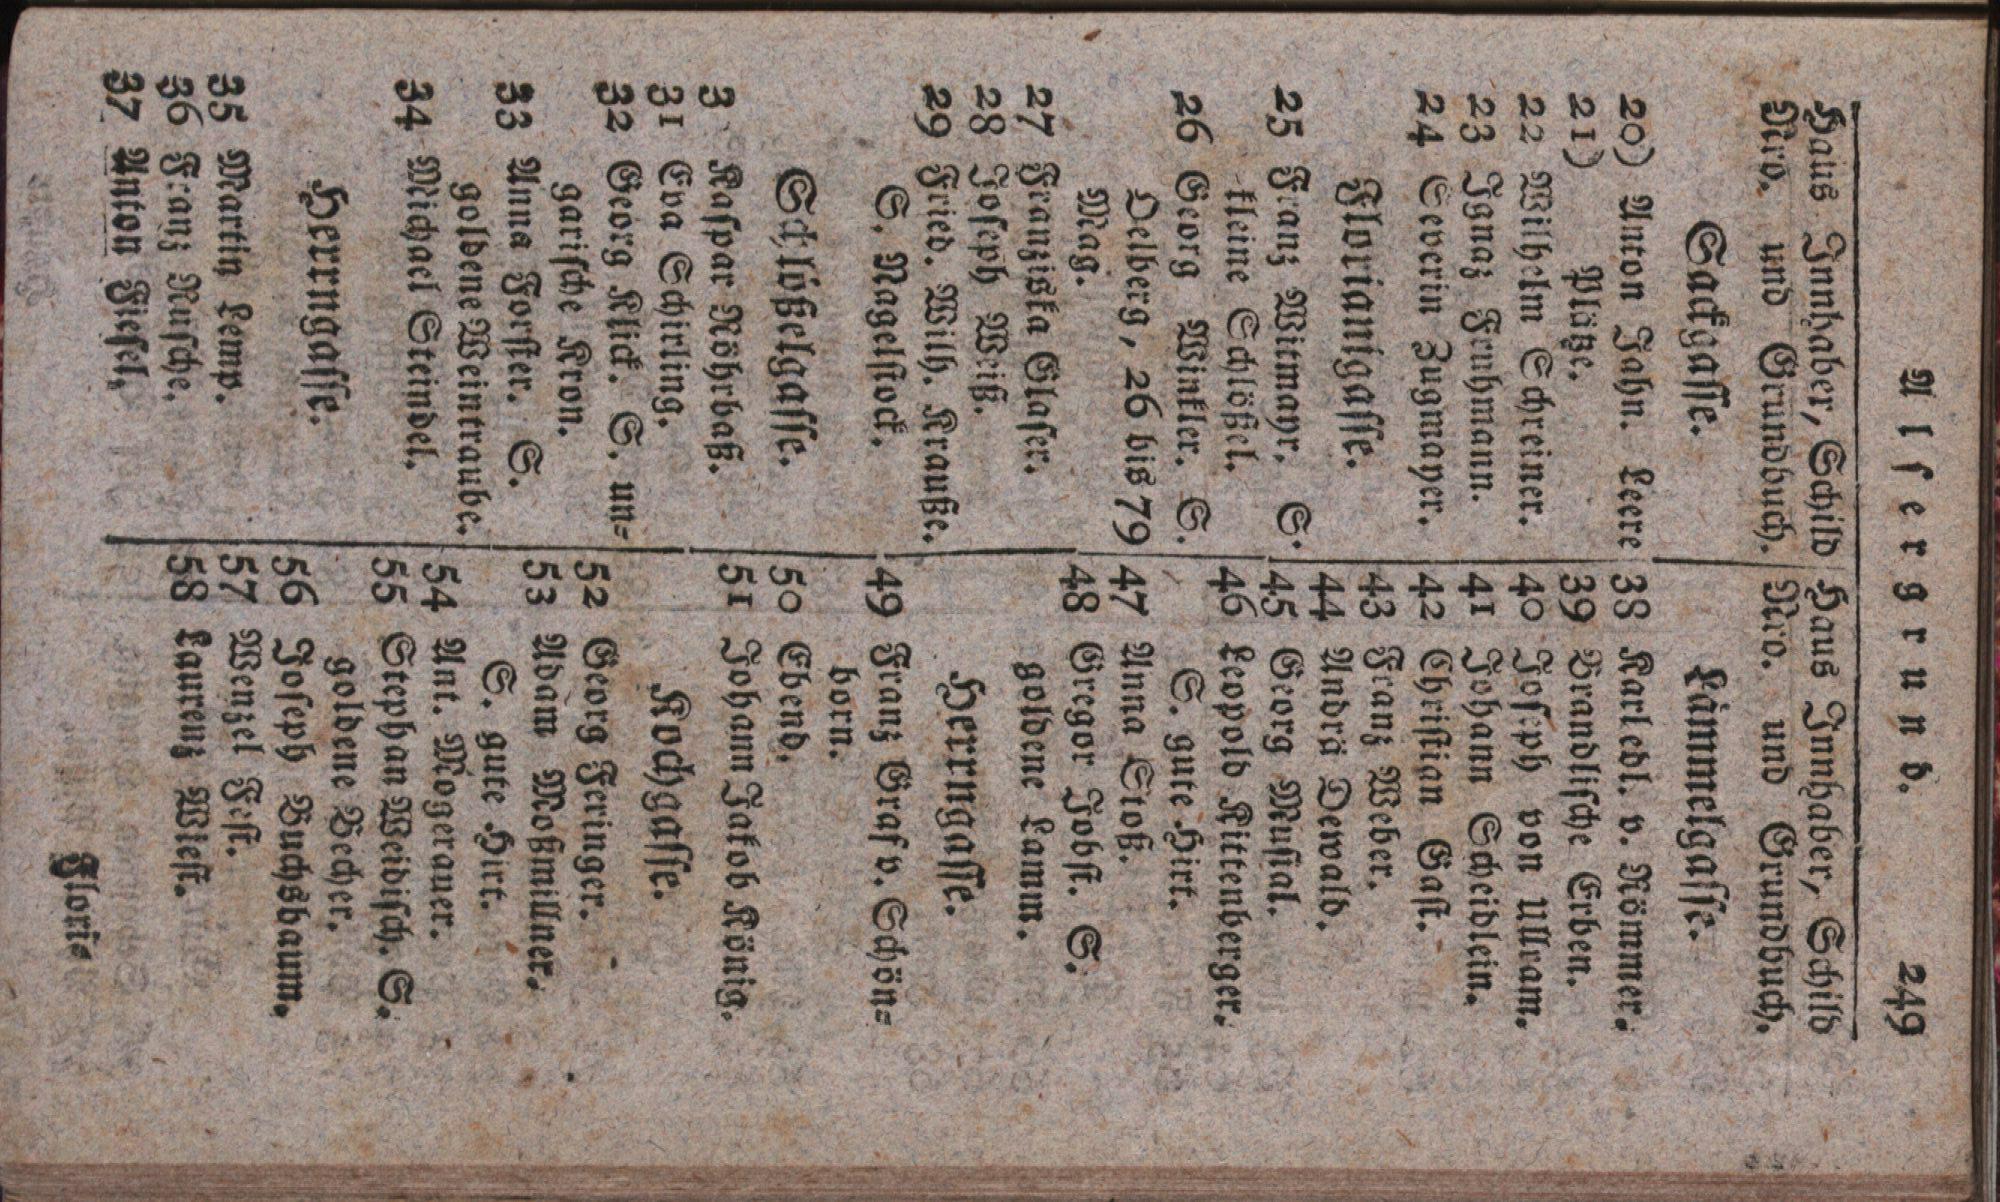 Alsergrund. 249
Haus Innhaber, Schild
Nro. und Grundbuch.
Sackgasse.
20) Anton Jahn. Leere
21) Plätze.
22 Wilhelm Schreiner.
23 Ignaz Feuhmann.
24 Severin Zugmayer.
Florianigasse.
25 Franz Witmayr. S.
kleine Schlößel.
26 Georg Winkler. S.
Oelberg, 26 bis 79
Mag.
27 Franziska Glaser.
28 Joseph Weiß.
29 Fried. Wilh. Krauße.
S. Nagelstock.
Schlößelgasse.
3 Kaspar Röhrbaß.
31 Eva Schirling.
32 Georg Klick. S. un=
garische Kron.
33 Anna Forster. S.
goldene Weintraube.
34 Michael Steindel.
Herrngasse.
35 Martin Lemp.
36 Franz Rusche.
37 Anton Fiesel.
Haus Innhaber, Schild
Nro. und Grundbuch.
Lämmelgasse.
38 Karl edl. v. Römmer.
39 Brandlische Erben.
40 Joseph von Ullram.
41 Johann Scheidlein.
42 Christian Gast.
43 Franz Weber.
44 Andrä Dewald.
45 Georg Musial.
46 Leopold Kittenberger.
S. gute Hirt.
47 Anna Stoß.
48 Gregor Jobst. S.
goldene Lamm.
Herrngasse.
49 Franz Graf v. Schön=
born.
50 Ebend.
51 Johann Jakob König.
Kochgasse.
52 Georg Feringer.
53 Adam Moßmillner.
S. gute Hirt.
54 Ant. Mogerauer.
55 Stephan Weidisch. S.
goldene Becher.
56 Joseph Buchsbaum.
57 Wenzel Fest.
58 Laurenz Wiest.
Flori=